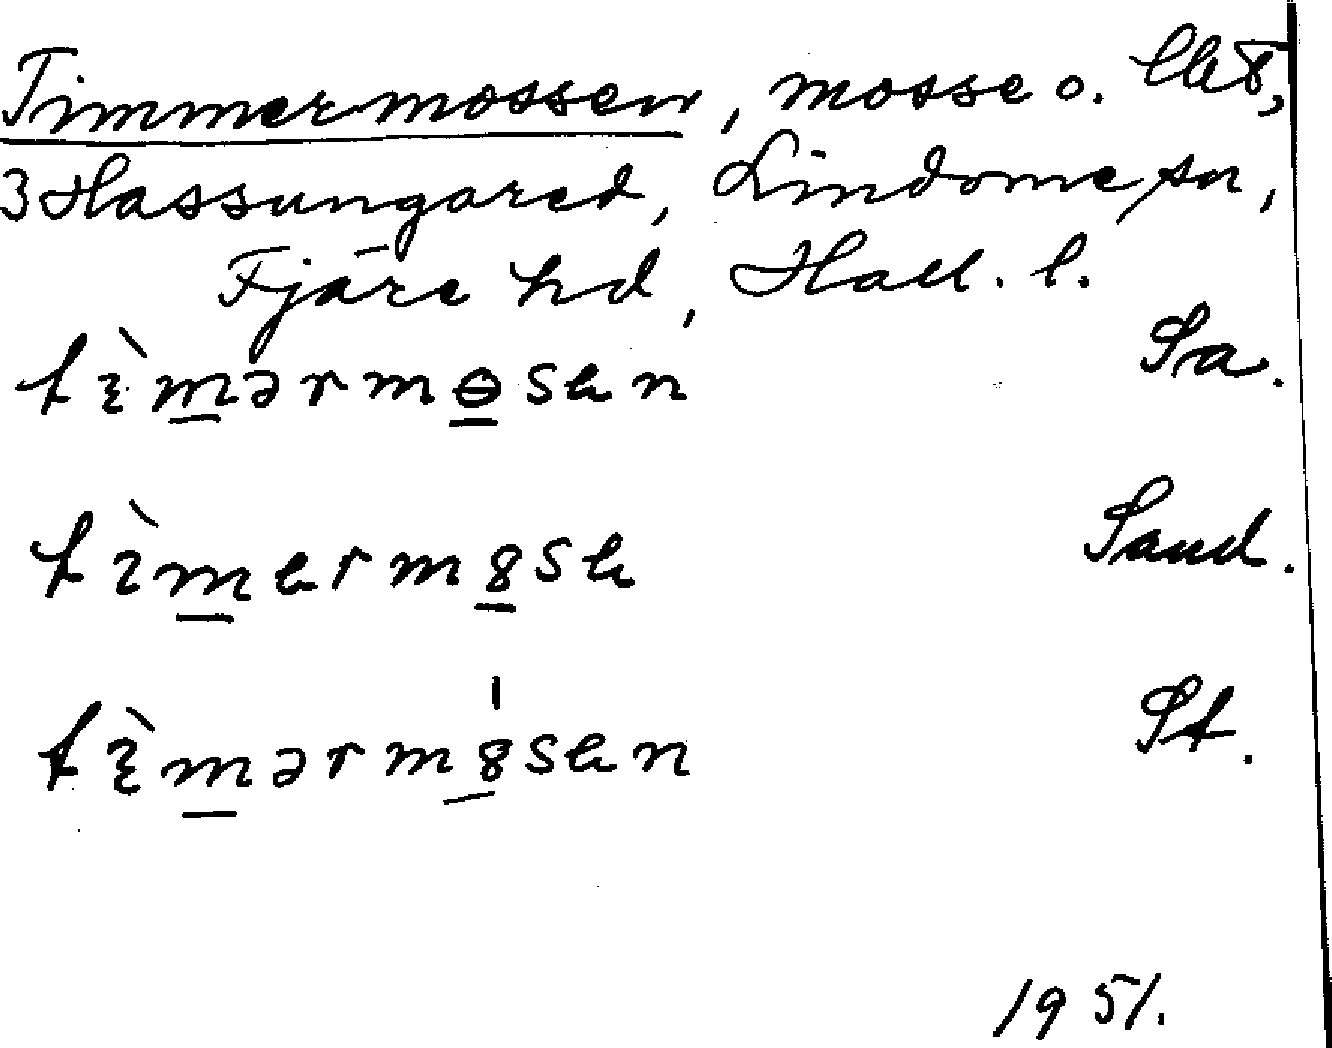 Timmermossen, mosse o.
3 Hassungared, Lindome sn,
Fjäre hd, Hall. l.
tìmərmɵsen Sa.
tìmermȣse Sand.
tìmərmȣ́sen St.
1951.